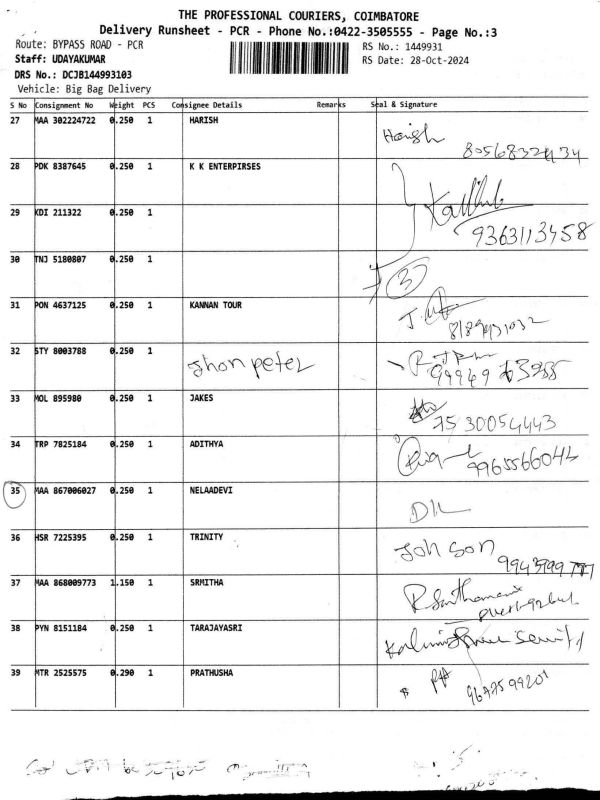 THE PROFESSIONAL COURIERS, COIMBATORE
Delivery Runsheet - PCR - Phone No.:0422-3505555 - Page No.:3
Route: BYPASS ROAD - PCR RS No.: 1449931
Staff: UDAYAKUMAR RS Date: 28-Oct-2024
DRS No.: DCJB144993103
Vehicle: Big Bag Delivery
S No Consignment No Weight PCS Consignee Details Remarks Seal & Signature
27 MAA 302224722 0.250 1 HARISH Harish
28 PDK 8387645 0.250 1 K K ENTERPIRSES
29 KDI 211322 0.250 1 9363113458
30 TNJ 5180807 0.250 1 3
31 PON 4637125 0.250 1 KANNAN TOUR
32 STY 8003788 0.250 1 Jhon peter
33 MOL 895980 0.250 1 JAKES 75 30054443
34 TRP 7825184 0.250 1 ADITHYA
35 MAA 867006027 0.250 1 NELAADEVI
36 HSR 7225395 0.250 1 TRINITY Johson
37 MAA 868009773 1.150 1 SRMITHA
38 PYN 8151184 0.250 1 TARAJAYASRI
39 MTR 2525575 0.290 1 PRATHUSHA